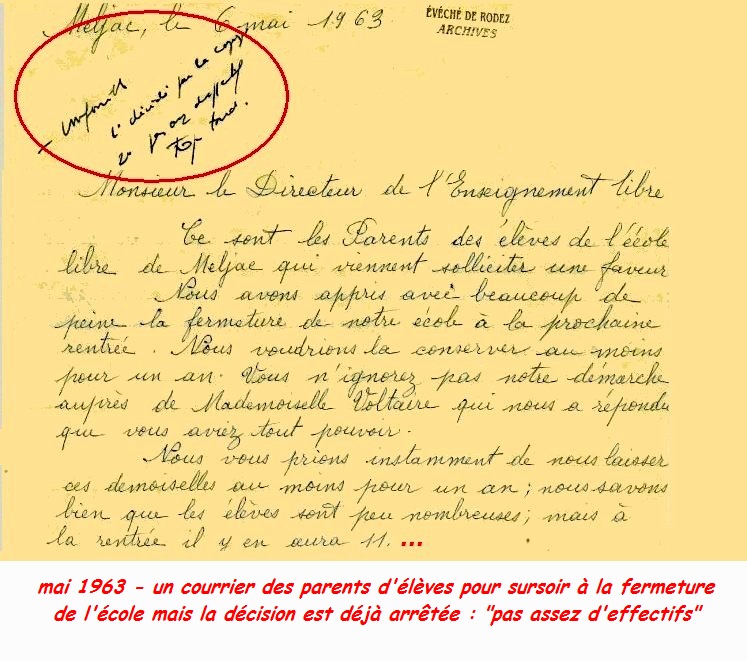 Meljac, le 6 mai 1963
ÉVÊCHÉ DE RODEZ
ARCHIVES
1° décidé par la
2°
Monsieur le Directeur de l'Enseignement libre
Ce sont les Parents des élèves de l'école
libre de Meljac qui viennent solliciter une faveur
Nous avons appris avec beaucoup de
peine la fermeture de notre école à la prochaine
rentrée. Nous voudrions la conserver au moins
pour un an. Vous n'ignorez pas notre démarche
auprès de Mademoiselle Voltaire qui nous a répondu
que vous aviez tout pouvoir.
Nous vous prions instamment de nous laisser
ces demoiselles au moins pour un an; nous savons
bien que les élèves sont peu nombreuses; mais à
la rentrée il y en aura 11. ...
mai 1963 - un courrier des parents d'élèves pour sursoir à la fermeture
de l'école mais la décision est déjà arrêtée : "pas assez d'effectifs"